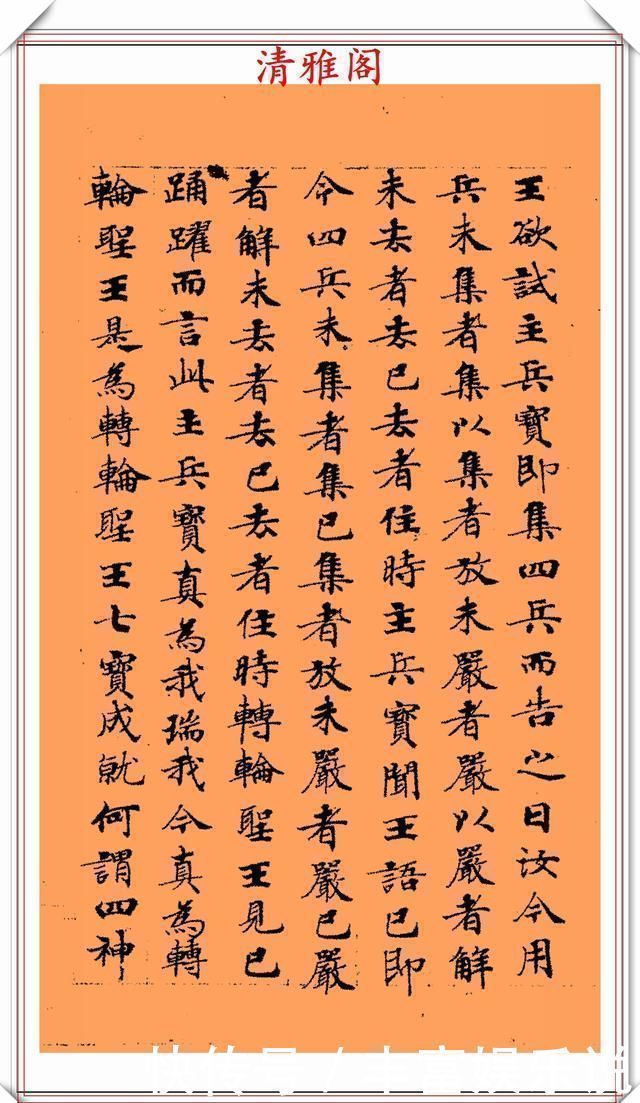 清雅阁
王欲試主兵寶即集四兵而告之曰汝今用
兵未集者集以集者放未嚴者嚴以嚴者解
未去者去已去者住時主兵寶聞王語已即
令四兵未集者集已集者放未嚴者嚴已嚴
者解未去者去已去者住時轉輪聖王見已
踊躍而言此主兵寶真為我瑞我今真為轉
輪聖王是為轉輪聖王七寶成就何謂四神
快传号 /